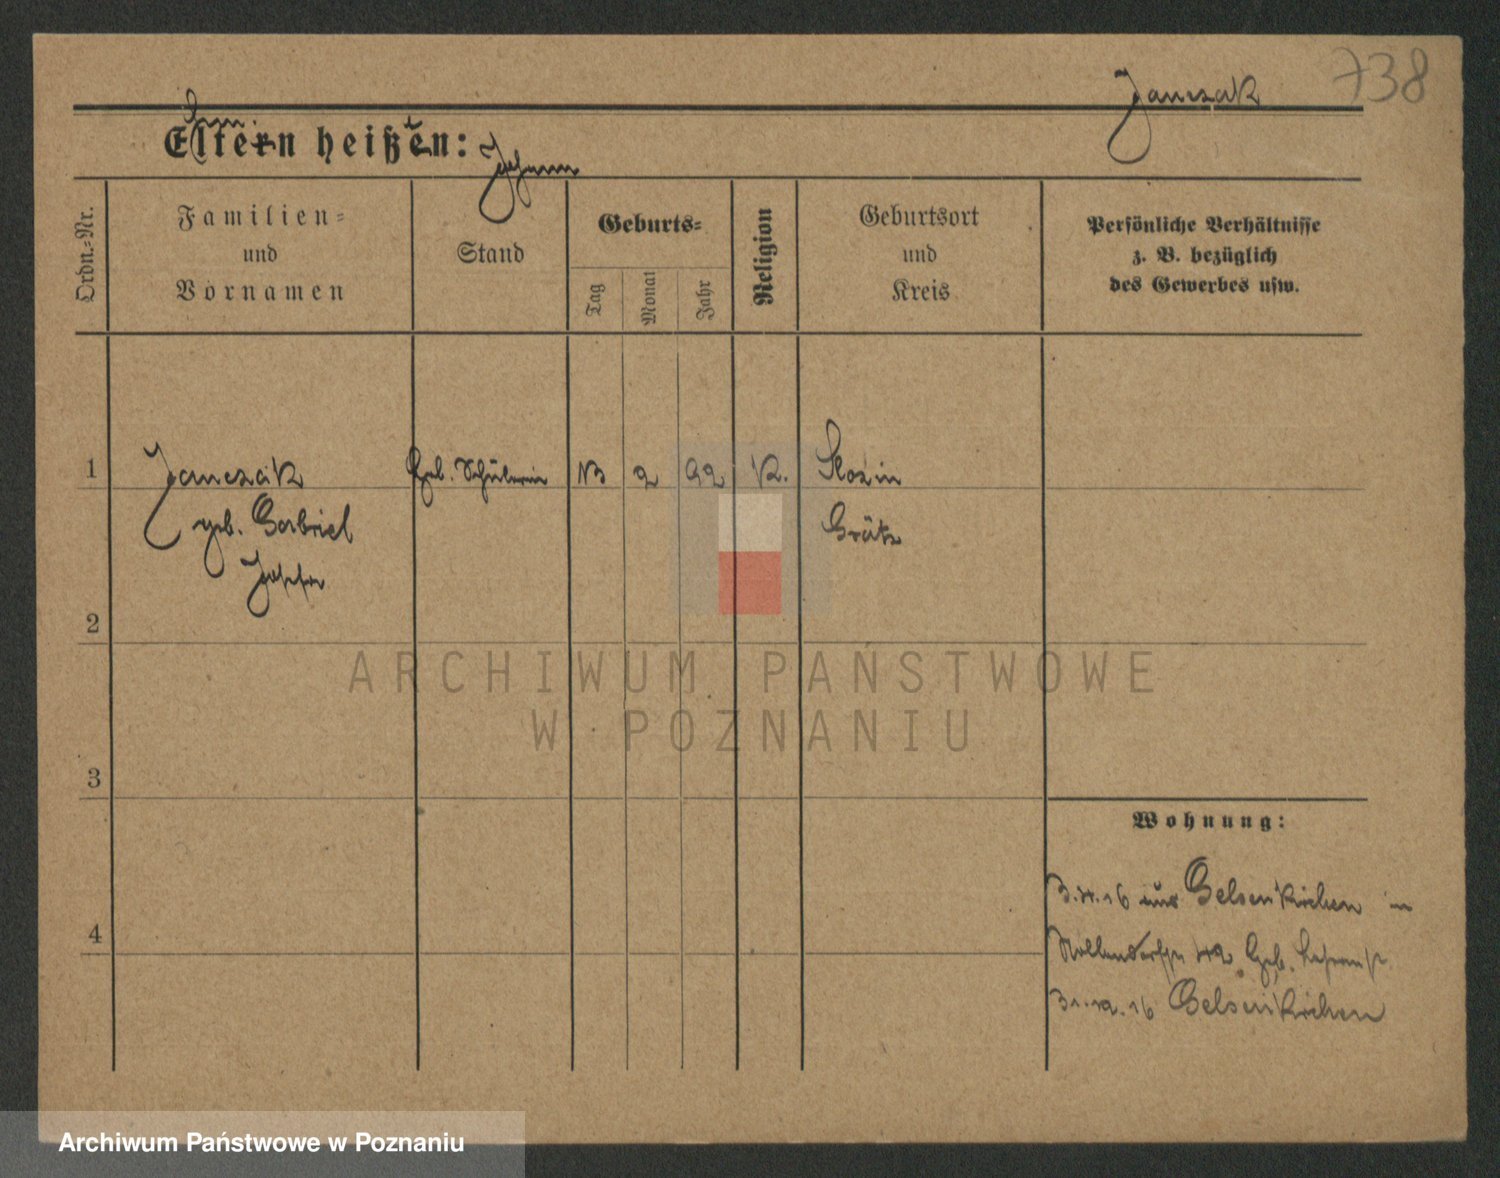 738
Janczak
Eltern heißen:
Johann
Ordn.-Nr.
Familien-
und
Vornamen
Stand
Geburts-
Tag
Monat
Jahr
Religion
Geburtsort
und
Kreis
Persönliche Verhältnisse
z. B. bezüglich
des Gewerbes usw.
1 Janczak Geb. Schülerin 13 2 92 K. Slozin
geb. Gabriel Grätz
Josefa
2
3
4
Wohnung:
3.11.16 aus Gelsenkirchen in
42 Geb.
31.12.16 Gelsenkirchen
ARCHIWUM PAŃSTWOWE
W POZNANIU
Archiwum Państwowe w Poznaniu